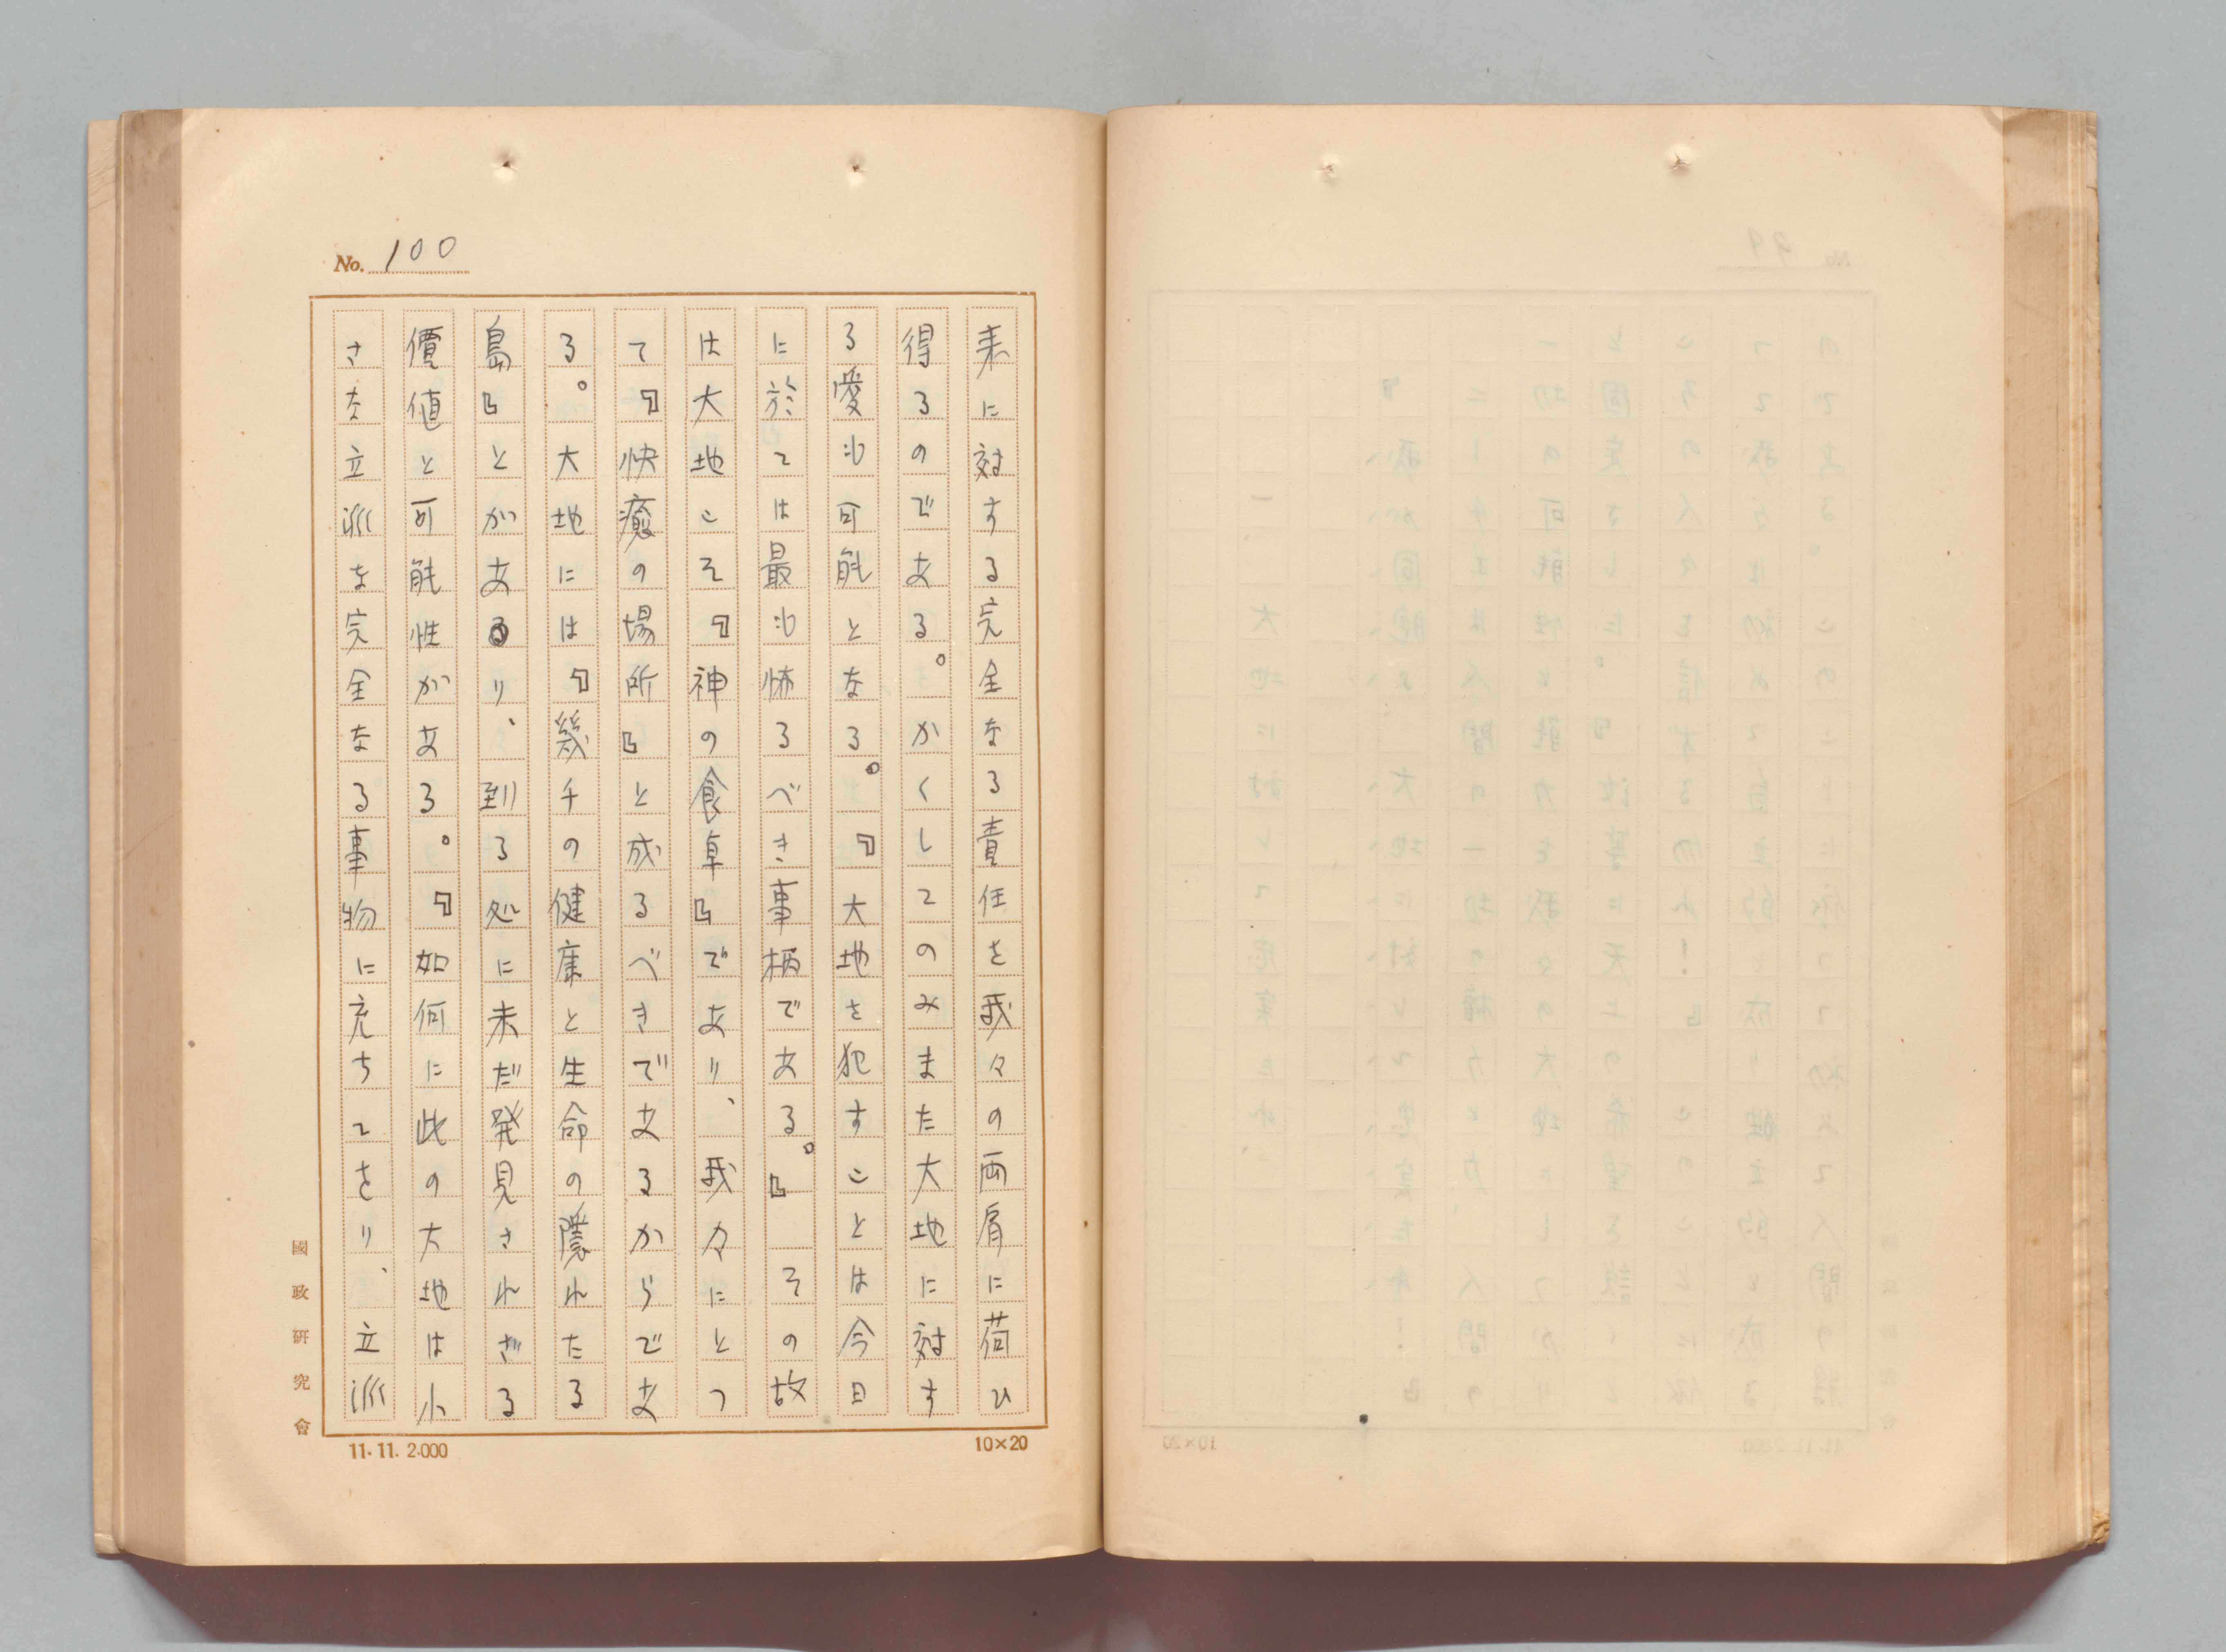 No. 100
来に対する完全なる責任を我々の両肩に荷ひ
得るのである。かくしてのみまた大地に対す
る愛も可能となる。『大地を犯すことは今日
に於ては最も怖るべき事柄である。』 その故
は大地こそ『神の食卓』であり、我々にとつ
て『快癒の場所』と成るべきであるからであ
る。大地には『幾千の健康と生命の隠れたる
島』とがあり、到る処に未だ発見されざる
價値と可能性がある。『如何に此の大地は小
さな立派な完全なる事物に充ちてをり、立派
國政研究會
11. 11. 2.000
10×20